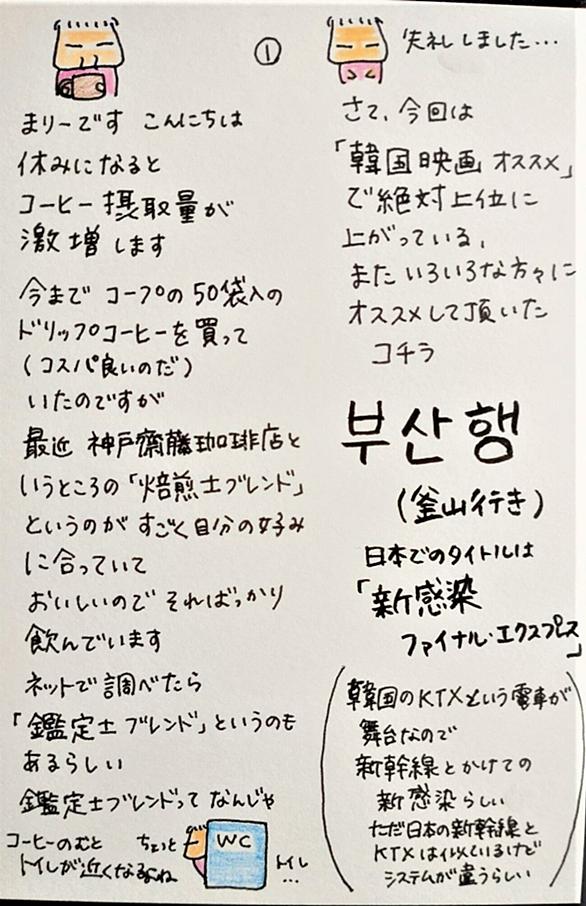 ①
まりーです こんにちは
休みになると
コーヒー摂取量が
激増します
今まで コープの50袋入の
ドリップコーヒーを買って
(コスパ良いのだ)
いたのですが
最近 神戸齋藤珈琲店と
いうところの「焙煎士ブレンド」
というのが すごく自分の好み
に合っていて
おいしいので そればっかり
飲んでいます
ネットで調べたら
「鑑定士ブレンド」というのも
あるらしい
鑑定士ブレンドって なんじゃ
コーヒーのむと
トイレが近くなるよね
ちょっと
WC
トイレ
…
失礼しました…
さて、今回は
「韓国映画 オススメ」
で絶対上位に
上がっている、
また いろいろな方々に
オススメして頂いた
コチラ
부산행
(釜山行き)
日本でのタイトルは
「新感染
ファイナル・エクスプレス」
(韓国のKTXという電車が
舞台なので
新幹線とかけての
新感染らしい
ただ日本の新幹線と
KTXは似ているけど
システムが違うらしい)